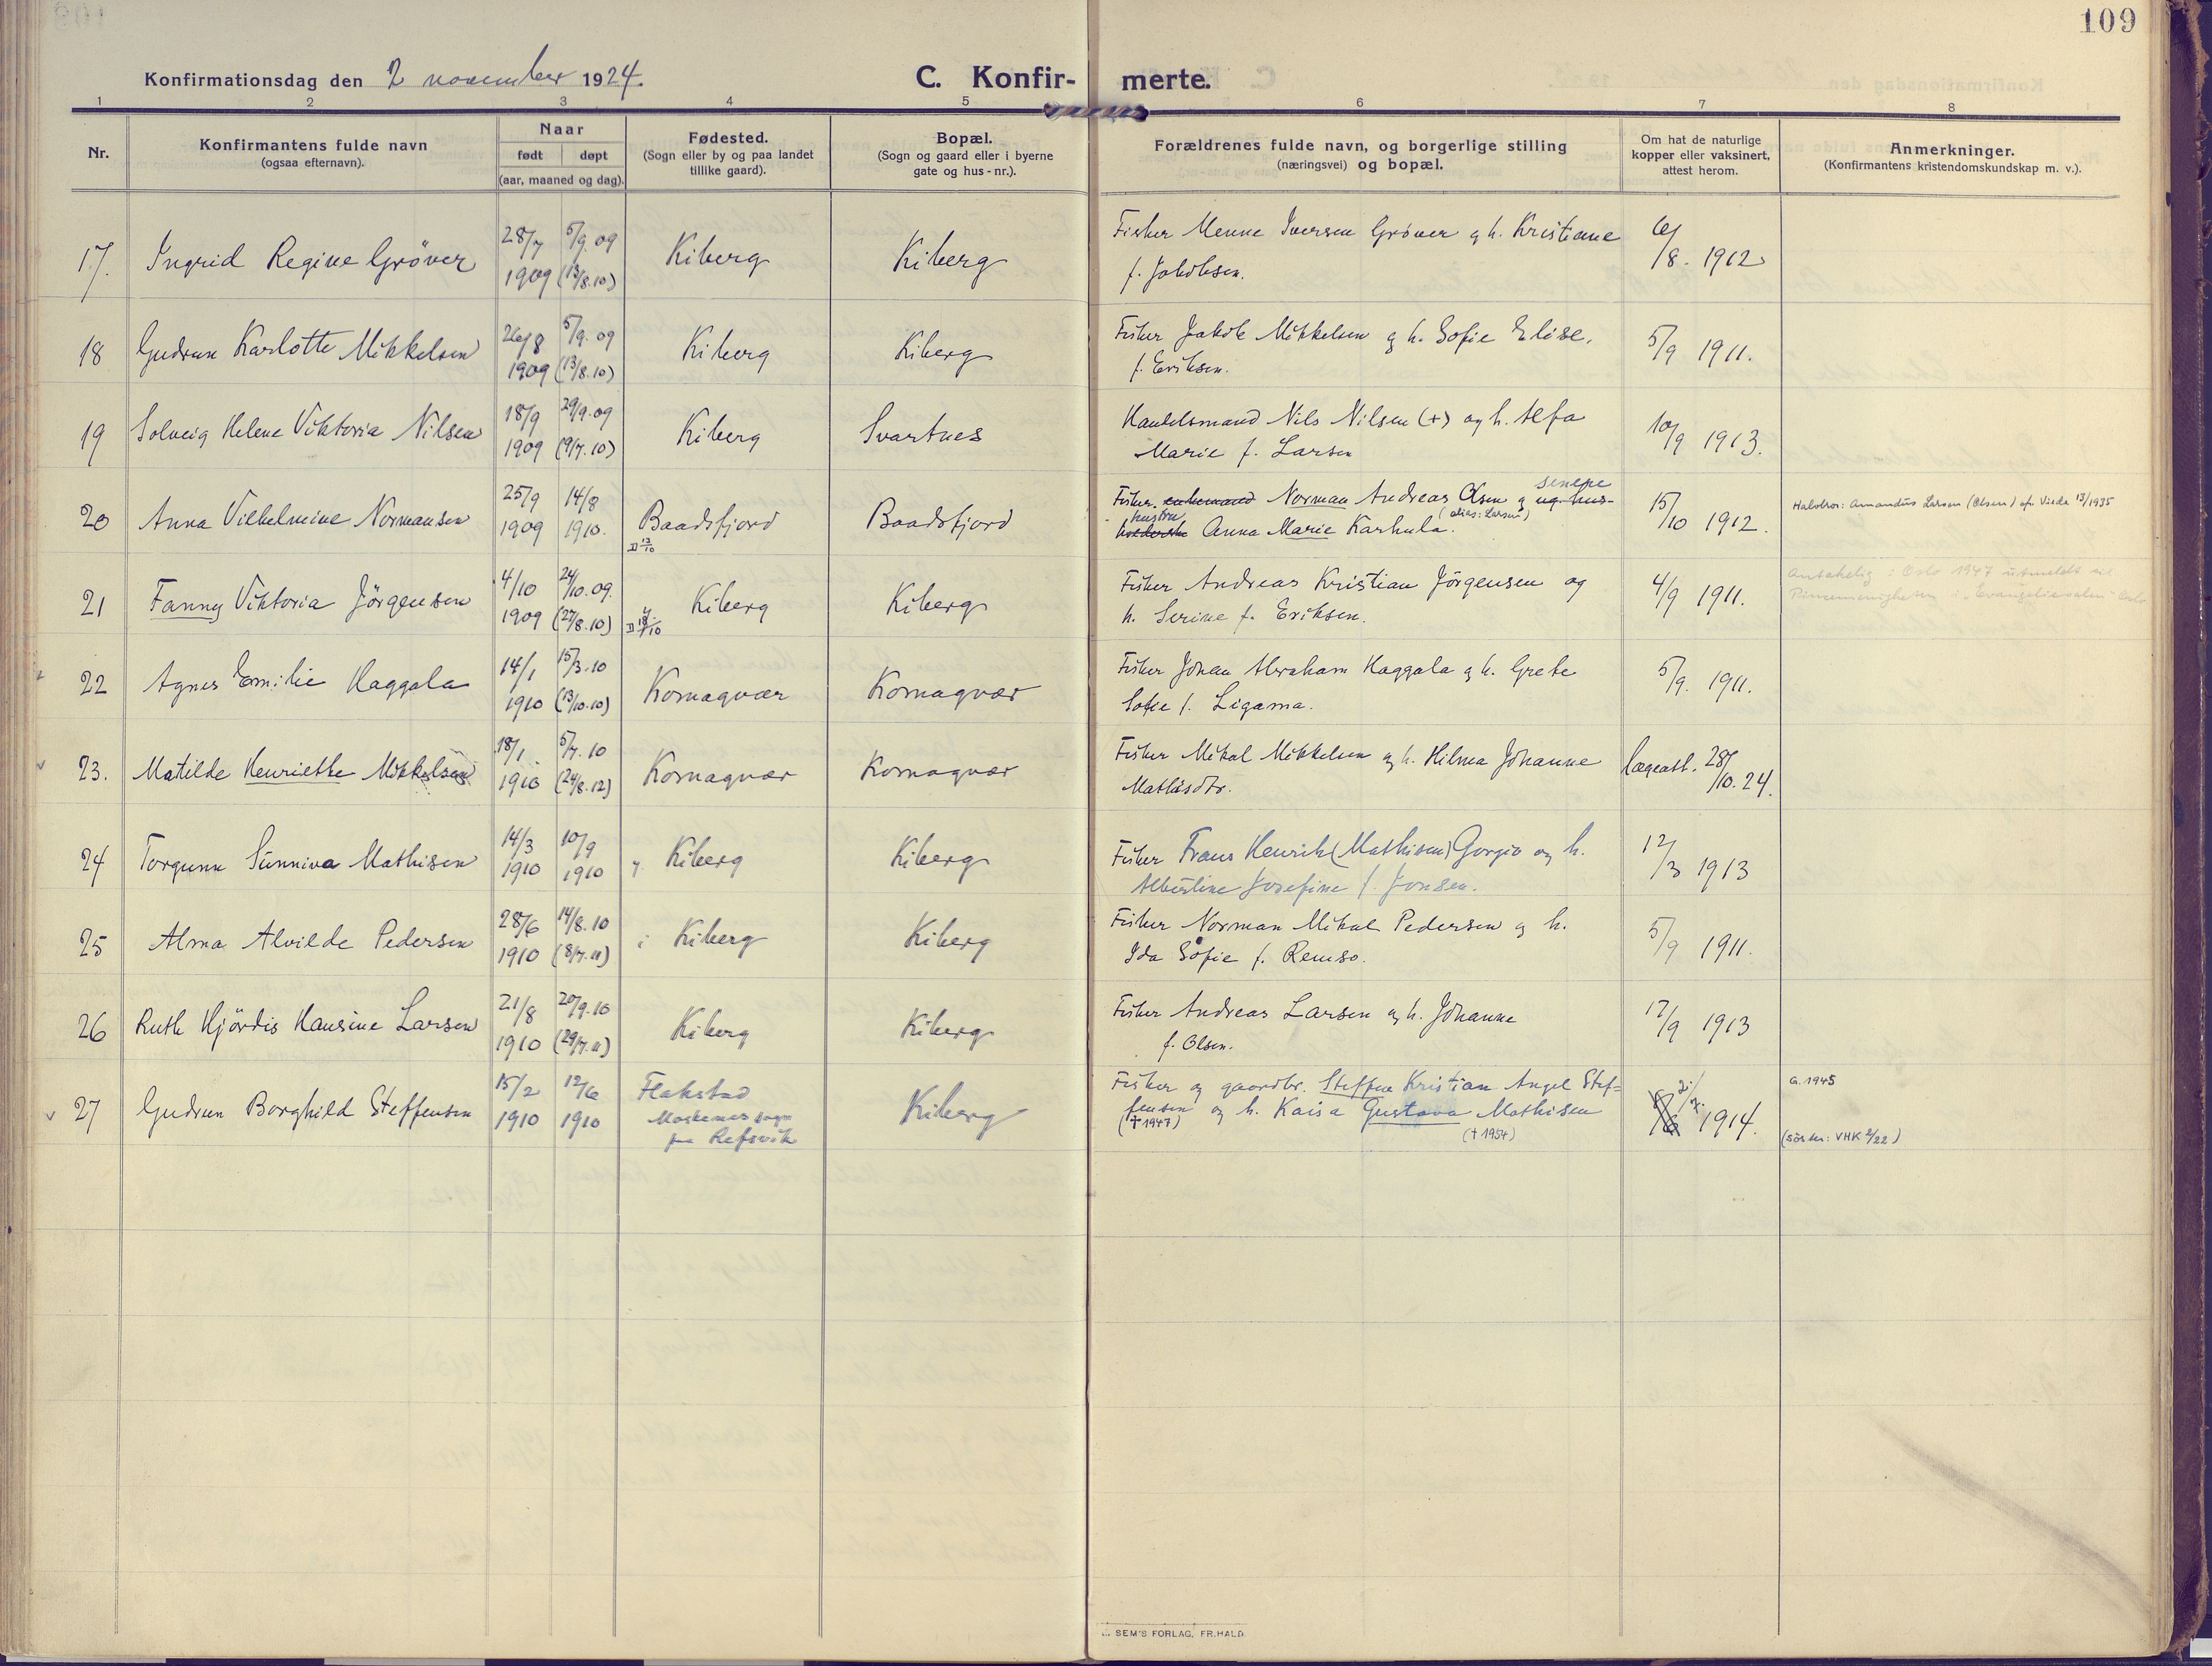 109
Konfirmationsdag den 2 november 1924.
C. Konfir- merte.
1 2 3 4 5 6 7 8
Nr.
Konfirmantens fulde navn
(ogsaa efternavn).
Naar
født døpt
(aar, maaned og dag).
Fødested.
(Sogn eller by og paa landet
tillike gaard).
Bopæl.
(Sogn og gaard eller i byerne
gate og hus-nr.).
Forældrenes fulde navn, og borgerlige stilling
(næringsvei) og bopæl.
Om hat de naturlige
kopper eller vaksinert,
attest herom.
Anmerkninger.
(Konfirmantens kristendomskundskap m. v.).
17. Ingrid Regine Gröver 28/7 5/9.09 Kiberg Kiberg Fisker Menne Iversen Gröver og h. Kristiane 6/8. 1912
1909 (13/8.10) f. Jakobsen.
18 Gudrun Karlotte Mikkelsen 26/8 5/9.09 Kiberg Kiberg Fisker Jakob Mikkelsen og h. Sofie Elise, 5/9 1911.
1909 (13/8.10) f. Eriksen.
19 Solveig Helene Viktoria Nilsen 18/9 29/9.09 Kiberg Svartnes Handelsmand Nils Nilsen (+) og h. Alfa 10/9 1913.
1909 (9/7.10) Marie f. Larsen
20 Anna Vilhelmine Normansen 25/9 14/8 Baadsfjord Baadsfjord Fisker enkemand Norman Andreas Olsen og senere ug. hus- 15/10 1912. Halvbror: Amandus Larsen (Olsen) cfr. Viede 13/1935
1909 1910. D 13/10 hustru holderske Anna Marie Karhula. (alias: Larsen)
21 Fanny Viktoria Jörgensen 4/10 24/10.09. Kiberg Kiberg Fisker Andreas Kristian Jörgensen og 4/9 1911. Antakelig i Oslo 1947 utmeldt til
1909 (27/8.10) h. Serine f. Eriksen. Pinsemenigheten i "Evangeliesalen" Oslo
22 Agnes Emilie Haggala 14/1 15/3.10 Komagvær Komagvær Fisker Johan Abraham Haggala og h. Grete 5/9. 1911.
1910 (13/10.10) Sofie f. Ligama.
23. Matilde Henriette Mikkelsen 18/1 5/7.10 Komagvær Komagvær Fisker Mikal Mikkelsen og h. Hilma Johanne lægeatt. 28/10.24.
1910 (24/8.12) Mathisdtr.
24 Torgunn Sunniva Mathisen 14/3 10/9 Kiberg Kiberg Fisker Frans Henrik (Mathisen) Gorgio og h. 12/3 1913
1910 1910 Albertine Josefine f. Jonsen.
25 Alma Alvilde Pedersen 28/6 14/8.10 Kiberg Kiberg Fisker Norman Mikal Pedersen og h. 5/9 1911.
1910 (8/7.11) Ida Sofie f. Remso.
26 Ruth Hjördis Hansine Larsen 21/8 20/9.10 Kiberg Kiberg Fisker Andreas Larsen og h. Johanne 17/9 1913
1910 (29/7.11) f. Olsen.
27 Gudrun Borghild Steffensen 15/2 12/6 Flakstad Kiberg Fisker og gaardbr. Steffen Kristian Angel Stef= 1914. G. 1945
1910 1910 Moskenes sogn fensen og h. Kaisa Gustava Mathisen
paa Refsvik (†1947) (†1954) (söster: VHK 2/22)
SEM'S FORLAG, FR.HALD.